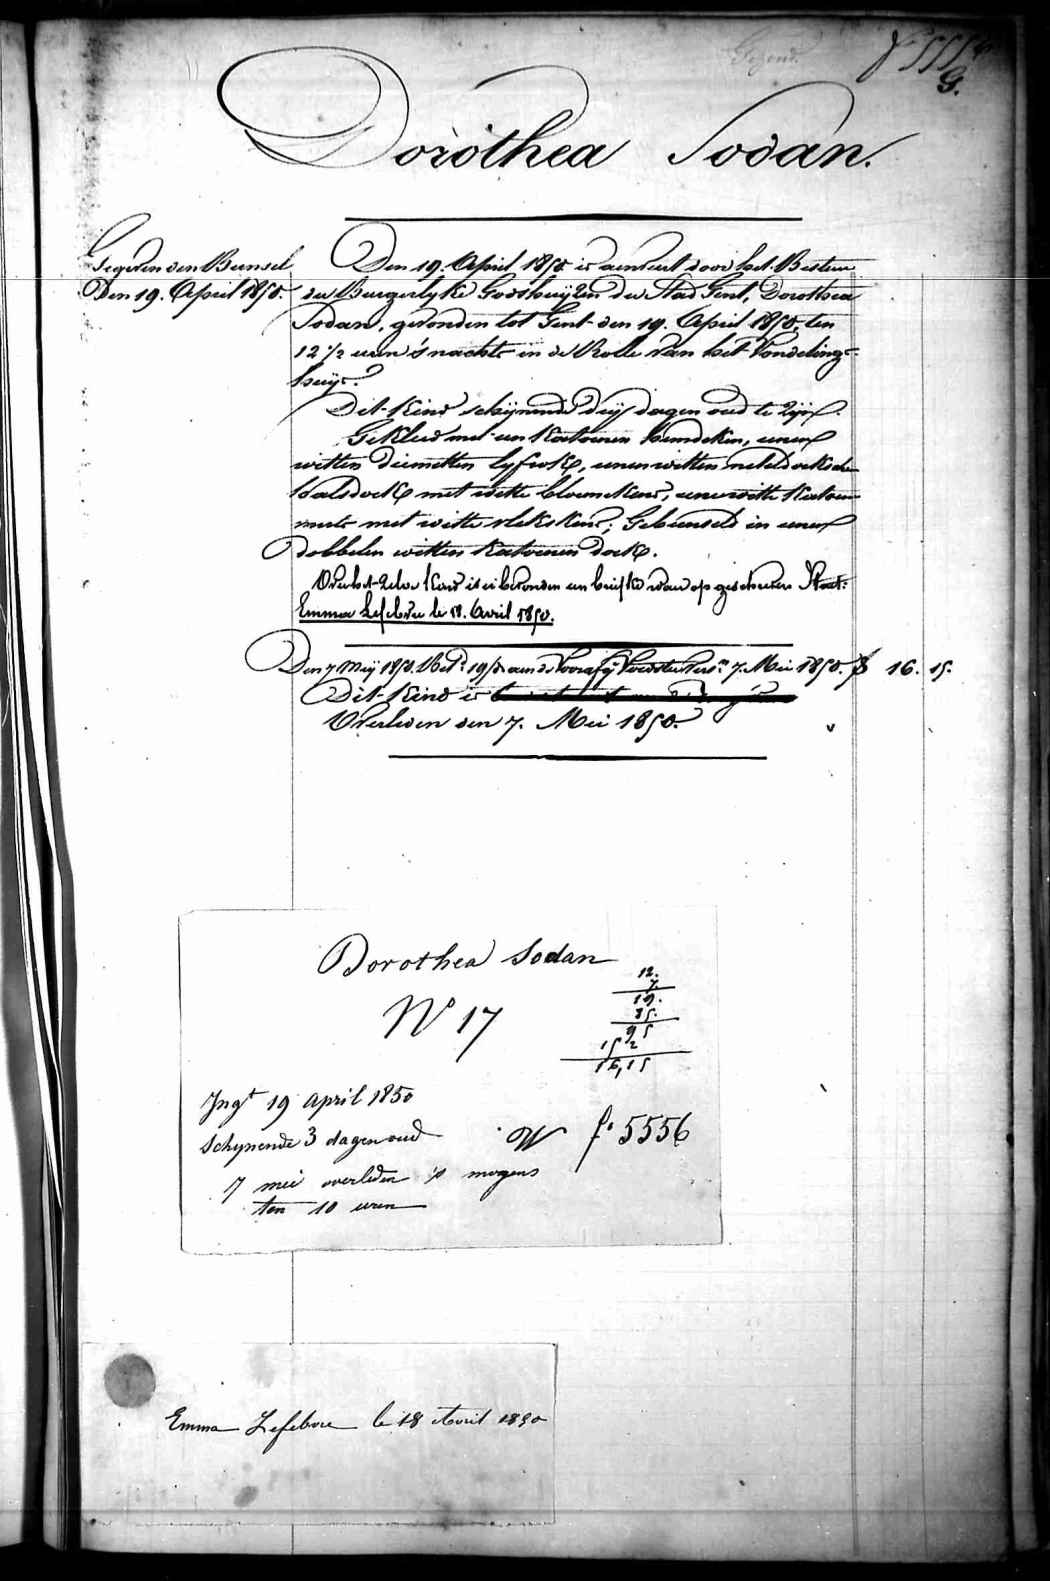 Gezond.
f° 5556
G.
Dorothea Sodan.
Gegeven den Bunsel
Den 19. April 1850.
Den 19. April 1850 is aenveird door het Bestuur
der Burgerlyke Godshuijzen der Stad Gent, Dorothea
Sodan, gevonden tot Gent den 19. April 1850, ten
12 1/2 uren 's nachts in de Rolle van het Vondeling-
huijs.
Dit Kind schijnende drij dagen oud te zijn.
Gekleed met een Katoenen hemdeken, eenen
witten diemetten lyfrok, eenen witten neteldoekschen
halsdoek met witte bloemekens, eene witte Katoene
muts met witte vlekskens; Gebunseld in eenen
dobbelen witten Katoenen doek.
Over het Zelve Kind is er bevonden een briefke waer op geschreven Staet:
Emma Lefebvre le 18. Avril 1850.
Den 7 Meij 1850. Bet. 19/ aen de Voorafg Voedster tot 7. Mei 1850. 16. 15.
Dit Kind is
Overleden den 7. Mei 1850.
Dorothea Sodan
N° 17
12.
7
19.
85.
95
152
16,15
Ingt 19 April 1850
Schynende 3 dagen oud
W f° 5556
7 mei overleden 's morgens
ten 10 uren
Emma Lefebvre le 18 Avril 1850